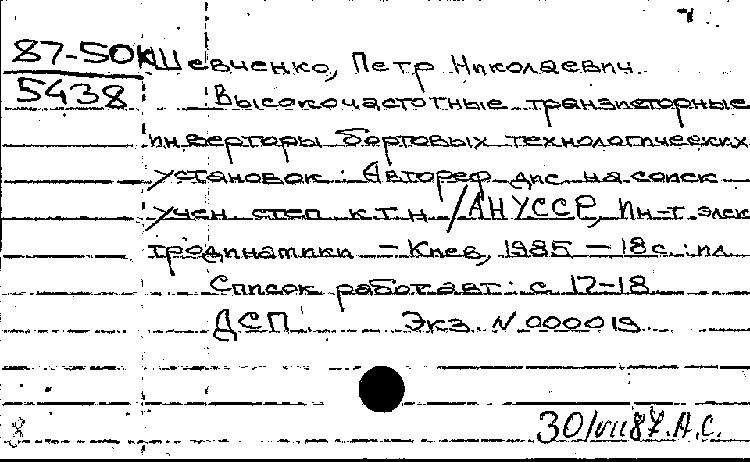 87-50к Шевченко, Петр Николаевич.
5438 Высокочастотные транзисторные
инверторы бортовых технологических
установок : Автореф дис на соиск
учен степ к.т.н / АН УССР, Ин-т элек
тродинамики – Киев, 1985 – 18 с. : ил
Список работ авт : с 17-18
ДСП Экз. N 000019
8 30/VII 87. А.С.